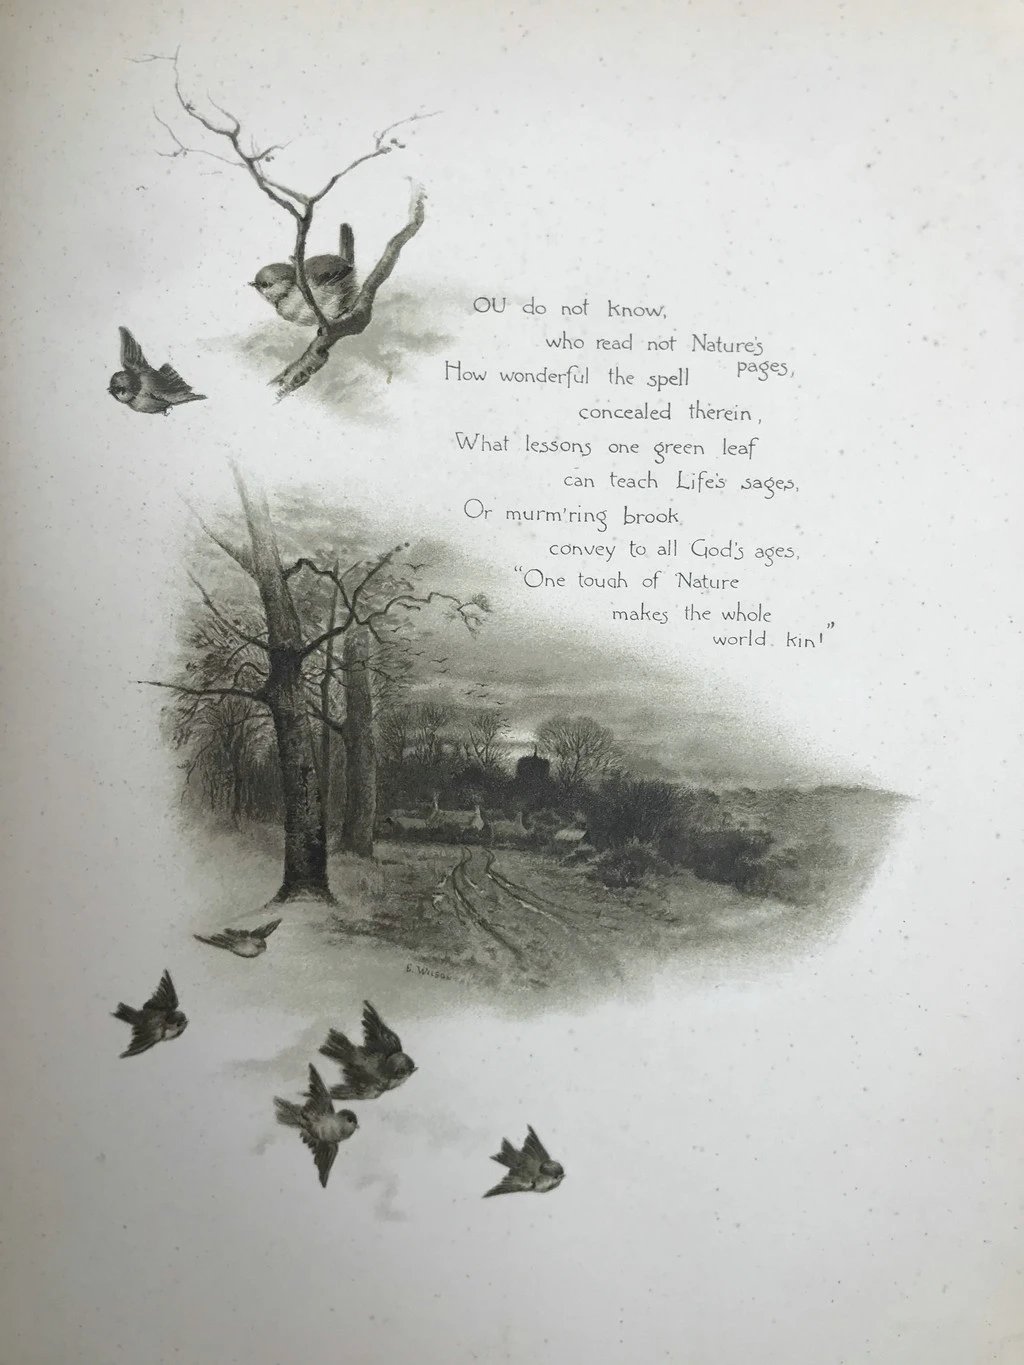 OU do not know,
who read not Nature's
pages,
How wonderful the spell
concealed therein,
What lessons one green leaf
can teach Life's sages,
Or murm'ring brook
convey to all God's ages,
"One touch of Nature
makes the whole
world kin!"
B. Wilson